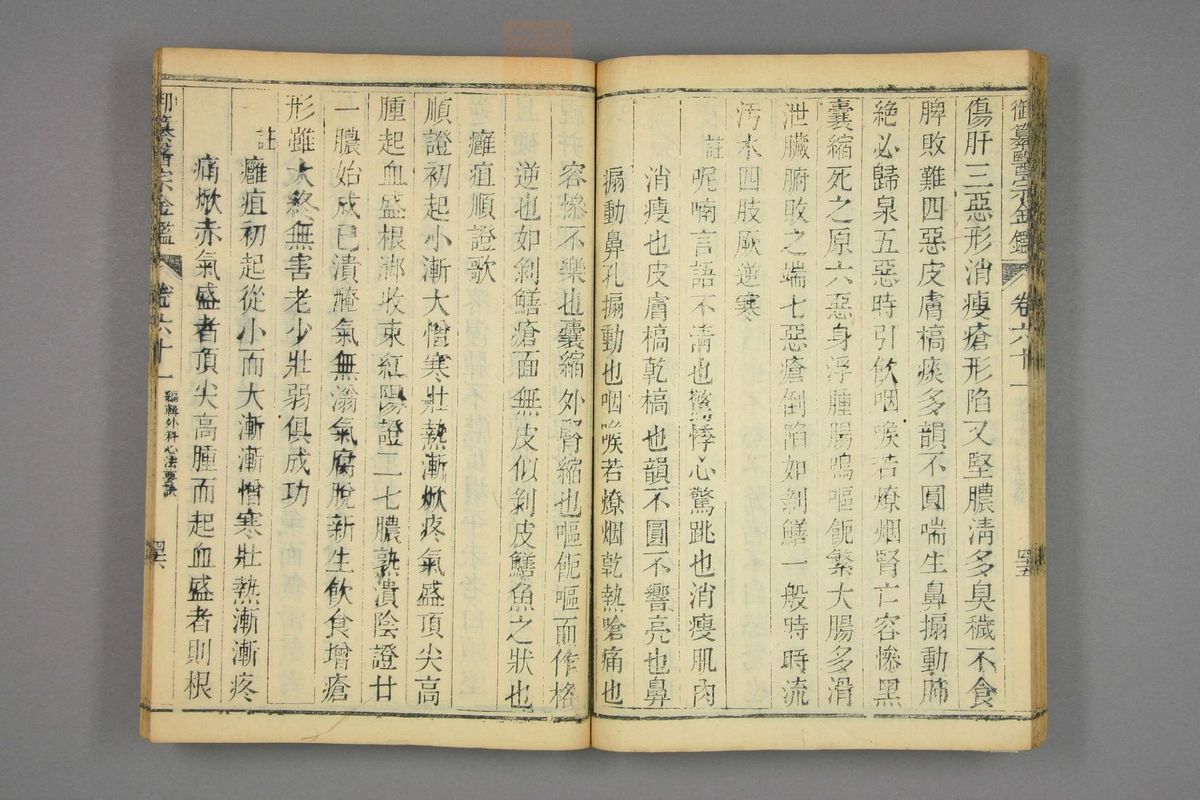 御纂醫宗金鑑 卷六十一 四五
傷肝三惡形消瘦瘡形陷又堅膿清多臭穢不食
脾敗難四惡皮膚槁痰多韻不圓喘生鼻搧動肺
絶必歸泉五惡時引飲咽喉若燎烟腎亡容慘黑
囊縮死之原六惡身浮腫腸鳴嘔鈪繁大腸多滑
泄臟腑敗之端七惡瘡倒陷如剝鱔一般時時流
汚水四肢厥逆寒
註 呢喃言語不清也驚悸心驚跳也消瘦肌肉
消瘦也皮膚槁乾槁也韻不圓不響亮也鼻
搧動鼻孔搧動也咽喉若燎烟乾熱嗆痛也
容慘不樂也囊縮外腎縮也嘔鈪嘔而作格
逆也如剝鱔瘡面無皮似剝皮鱔魚之狀也
癰疽順證歌
順證初起小漸大憎寒壯熱漸焮疼氣盛頂尖高
腫起血盛根脚收束紅陽證二七膿熟潰陰證廿
一膿始成已潰腌氣無滃氣腐脫新生飲食增瘡
形雖大終無害老少壯弱俱成功
註 癰疽初起從小而大漸漸憎寒壯熱漸漸疼
痛焮赤氣盛者頂尖高腫而起血盛者則根
御纂醫宗金鑑 卷六十一 編輯外科心法要訣 四六